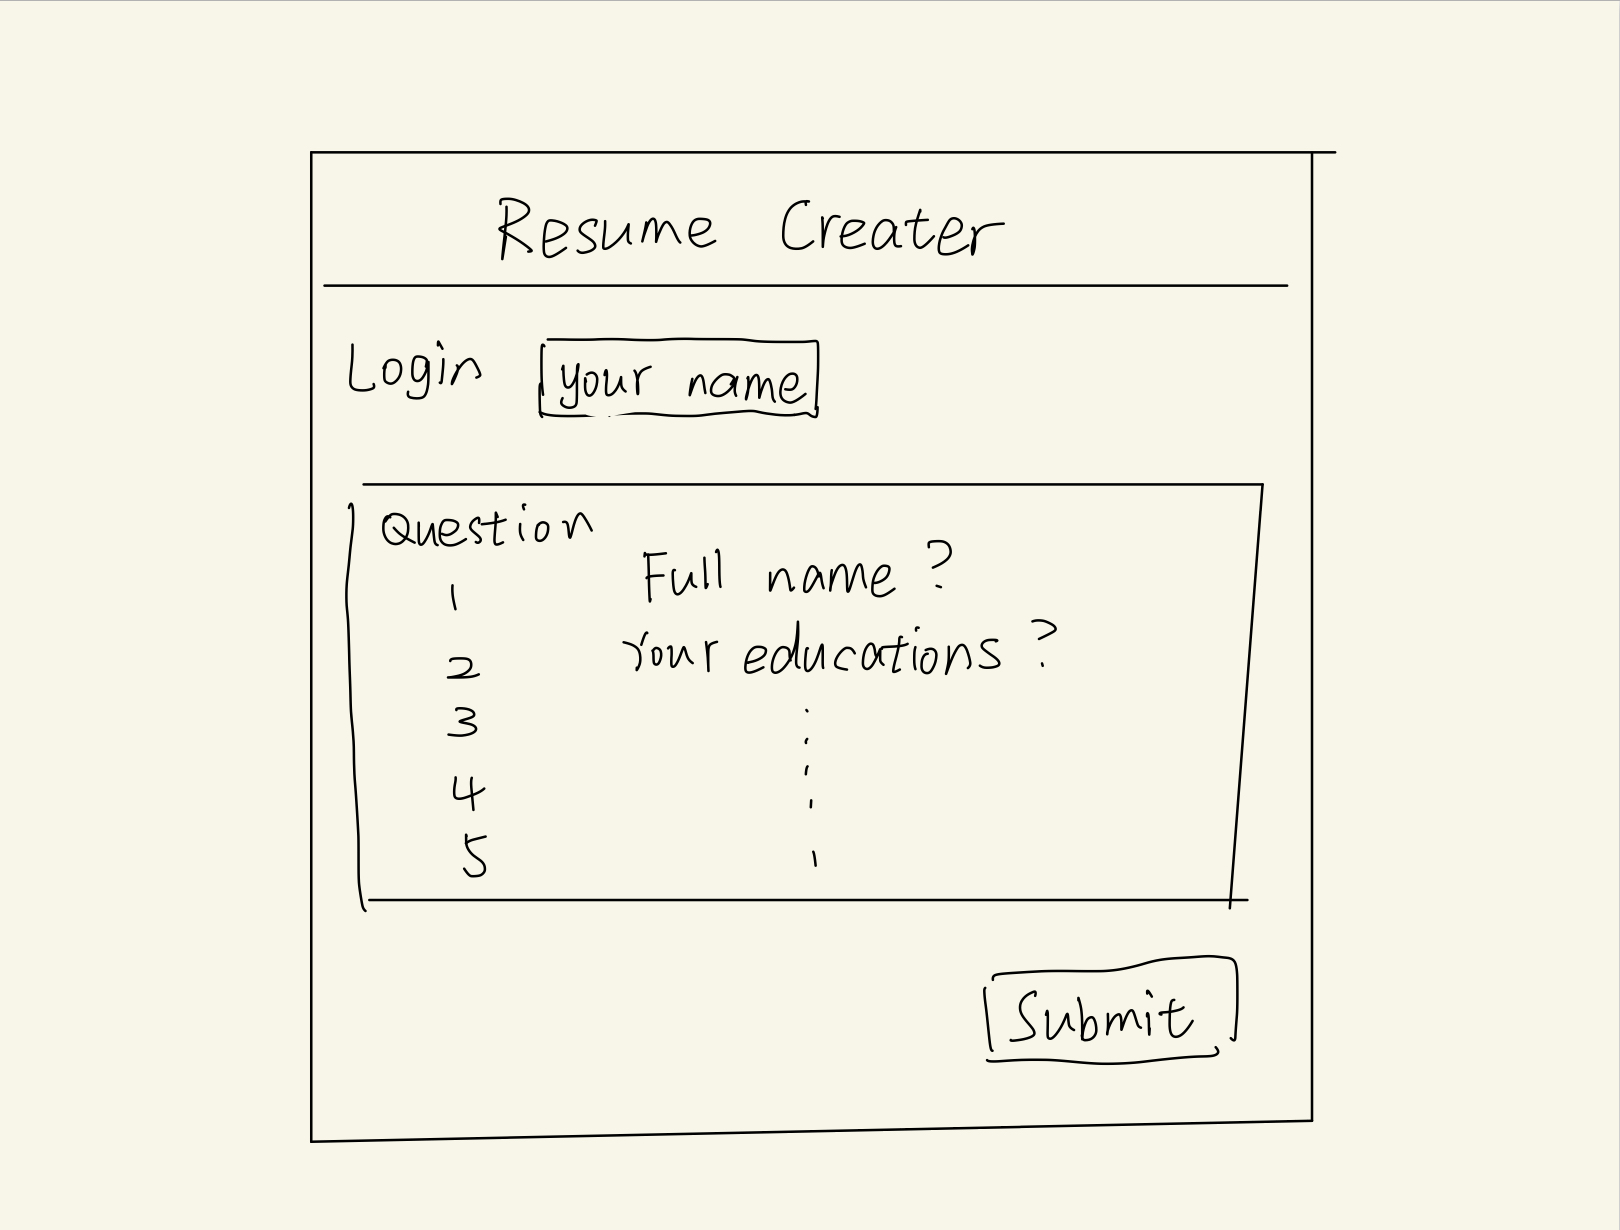 Resume Creater
Login your name
Question
1 Full name ?
2 Your educations ?
3
4
5
Submit